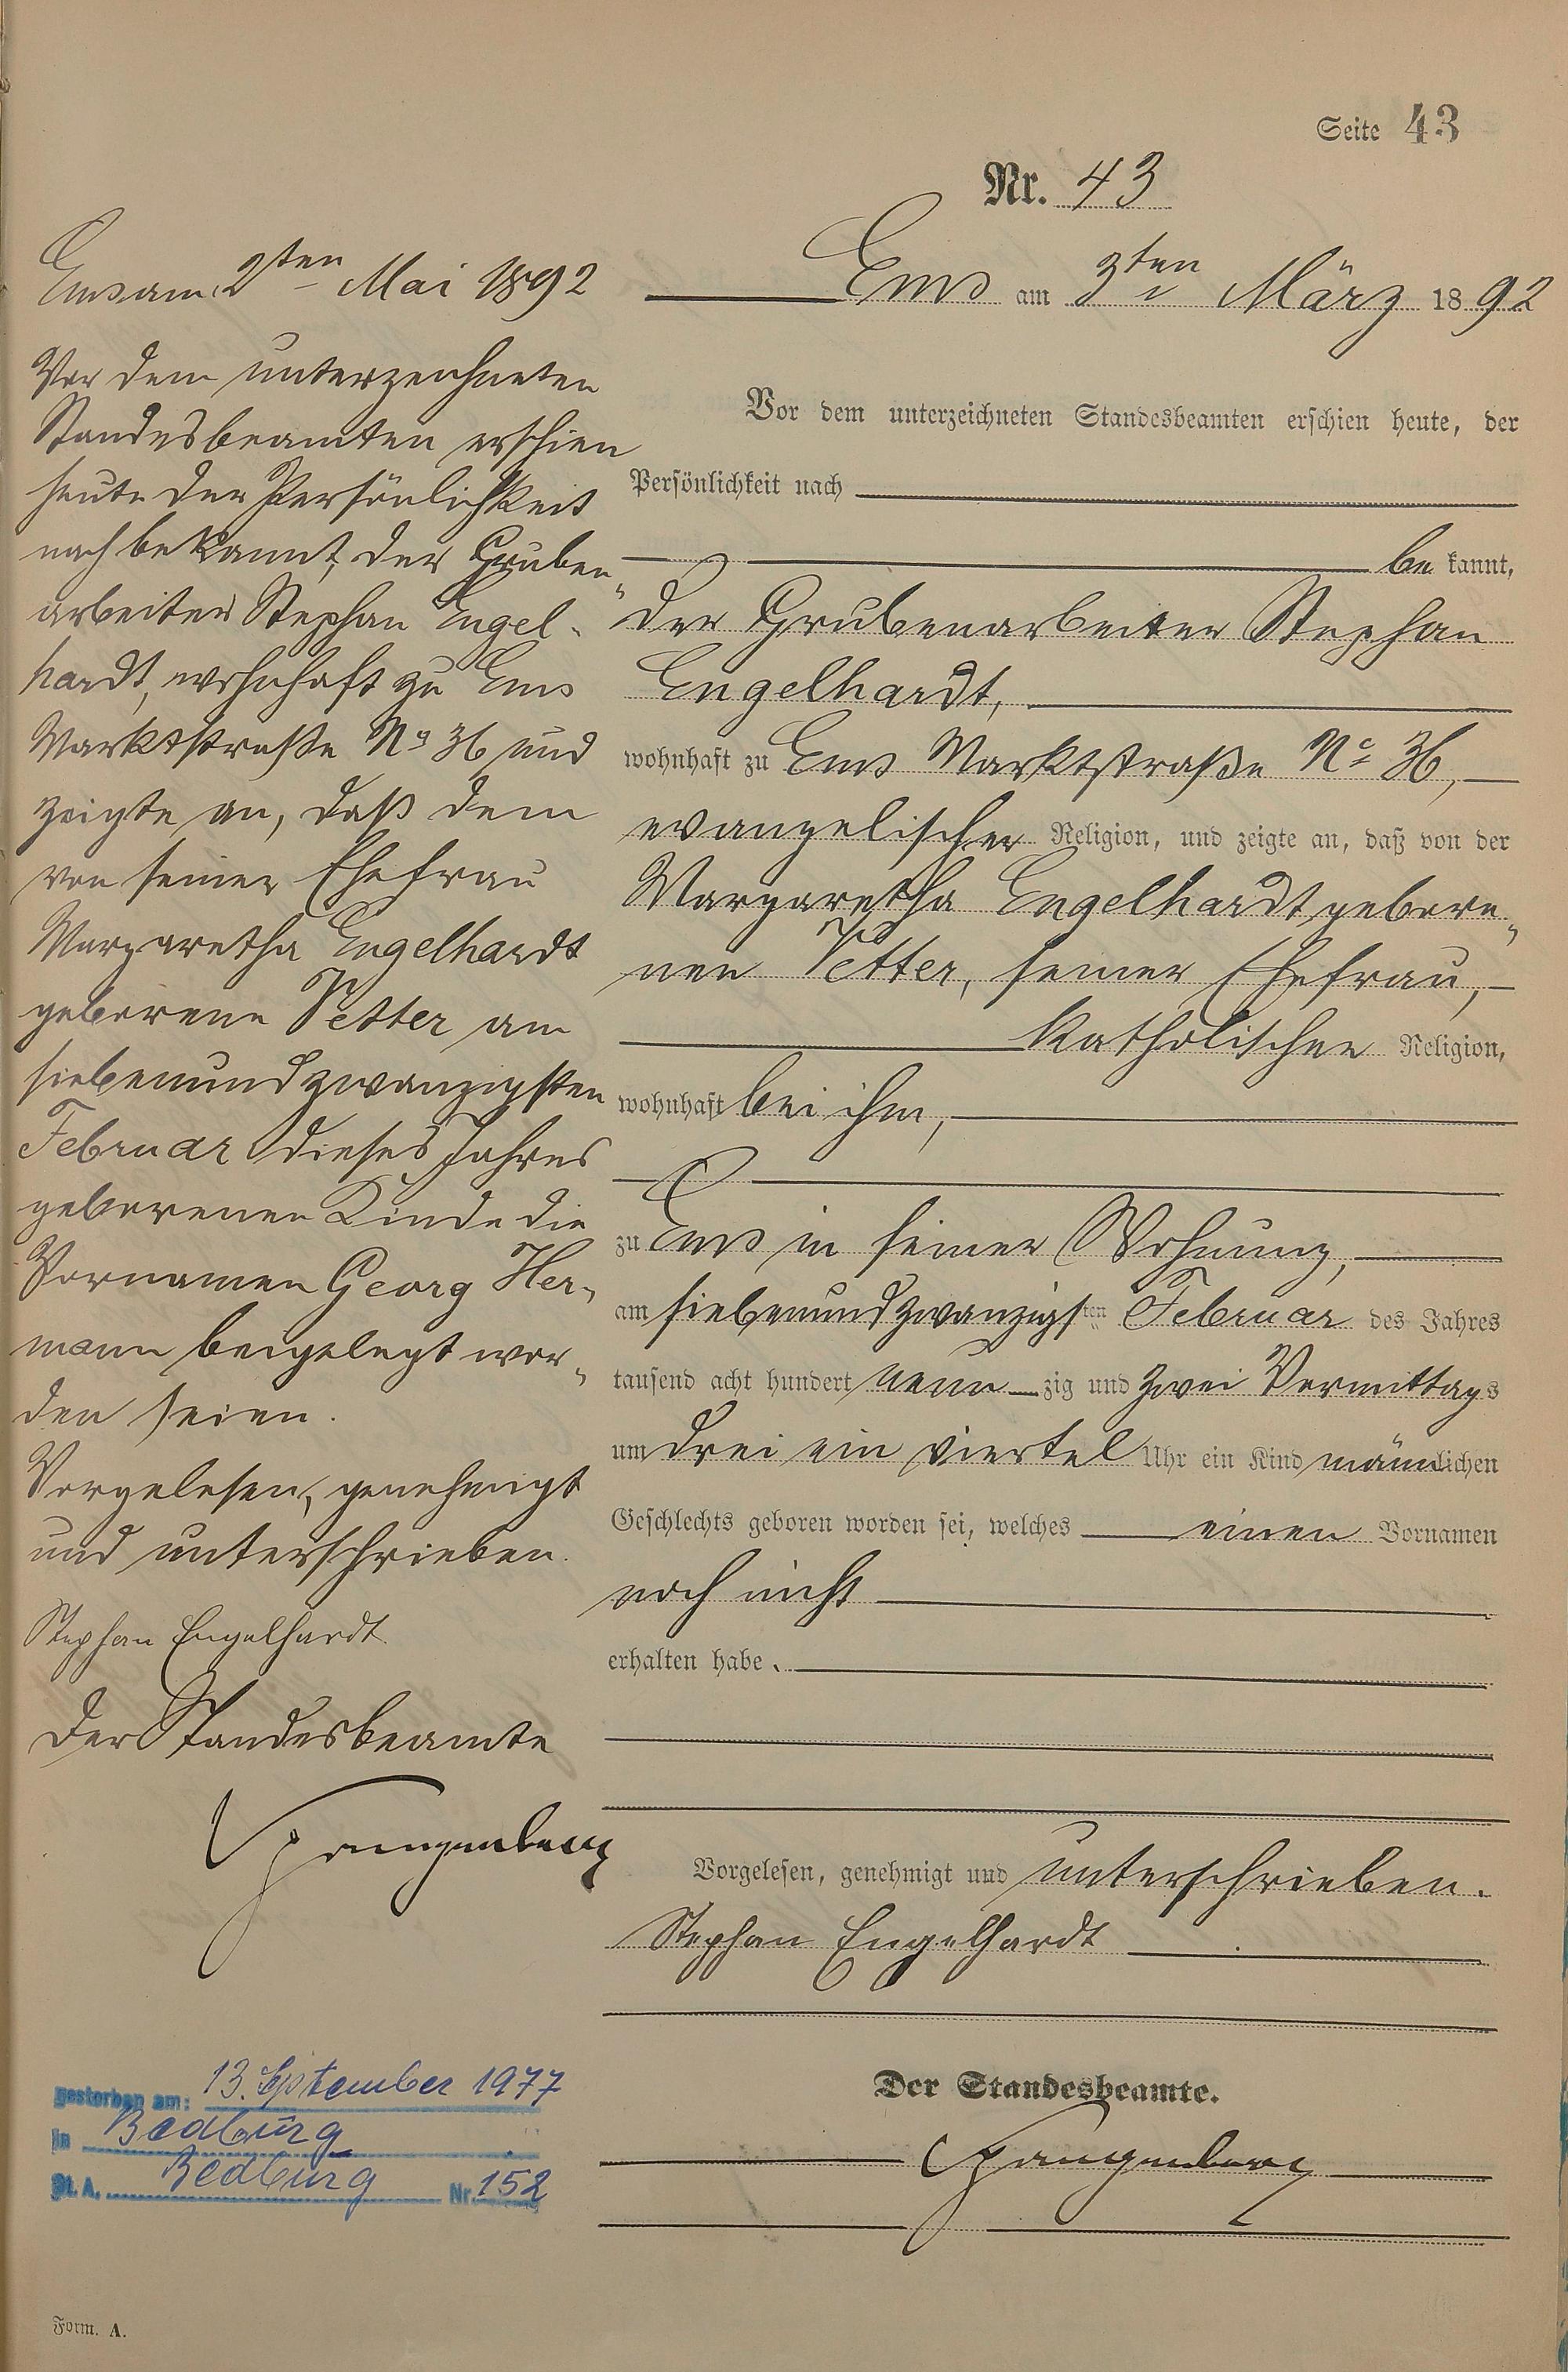 Seite 43
Nr. 43
Ems am 3ten März 1892
Vor dem unterzeichneten Standesbeamten erschien heute, der
Persönlichkeit nach
bekannt,
der Grubenarbeiter Stephan
Engelhardt,
wohnhaft zu Ems Marktstraße No 36,
evangelischer Religion, und zeigte an, daß von der
Margaretha Engelhardt gebore-
nen Petter, seiner Ehefrau,
katholischer Religion,
wohnhaft bei ihm,
zu Ems in seiner Wohnung,
am siebenundzwanzigsten Februar des Jahres
tausend acht hundert neunzig und zwei Vormittags
um drei ein viertel Uhr ein Kind männlichen
Geschlechts geboren worden sei, welches einen Vornamen
noch nicht
erhalten habe.
Vorgelesen, genehmigt und unterschrieben.
Stephan Engelhardt
Der Standesbeamte.
Spangenberg
Ems am 2ten Mai 1892
Vor dem unterzeichneten
Standesbeamten erschien
heute der Persönlichkeit
nach bekannt, der Gruben-
arbeiter Stephan Engel-
hardt, wohnhaft zu Ems
Marktstraße No 36 und
zeigte an, daß dem
von seiner Ehefrau
Margaretha Engelhardt
geborene Petter am
siebenundzwanzigsten
Februar dieses Jahres
geborenen Kinde die
Vornamen Georg Her-
mann beigelegt wor-
den seien.
Vorgelesen, genehmigt
und unterschrieben.
Stephan Engelhardt.
Der Standesbeamte
Spangenberg
gestorben am: 13. September 1977
in Bedburg
St. A. Bedburg Nr. 152
Form. A.